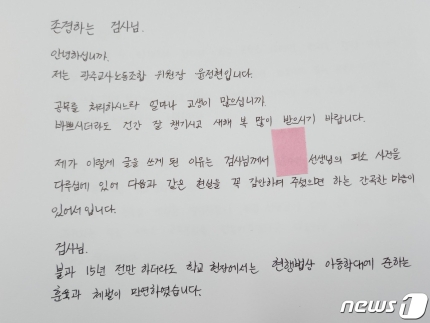 존경하는 검사님.
안녕하십니까.
저는 광주교사노동조합 위원장 윤정현입니다.
공무를 처리하시느라 얼마나 고생이 많으십니까.
바쁘시더라도 건강 잘 챙기시고 새해 복 많이 받으시기 바랍니다.
제가 이렇게 글을 쓰게 된 이유는 검사님께서 선생님의 피소 사건을
다루심에 있어 다음과 같은 현실을 꼭 감안하여 주셨으면 하는 간곡한 마음이
있어서 입니다.
검사님.
불과 15년 전만 하더라도 학교 현장에서는 현행법상 아동학대에 준하는
훈육과 체벌이 만연하였습니다.
news1